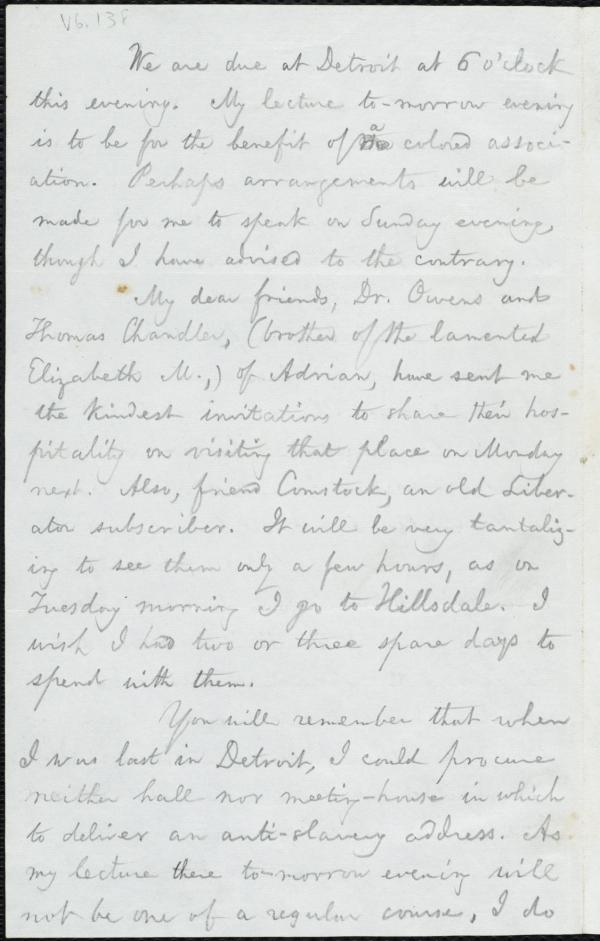 V6.138
We are due at Detroit at 6 o'clock
this evening. My lecture to-morrow evening
is to be for the benefit of a colored associ-
ation. Perhaps arrangements will be
made for me to speak on Sunday evening,
though I have advised to the contrary.
My dear friends, Dr. Owens and
Thomas Chandler, (brother of the lamented
Elizabeth M.,) of Adrian, have sent me
the kindest invitations to share their hos-
pitality on visiting that place on Monday
next. Also, friend Comstock, an old Liber-
ator subscriber. It will be very tantaliz-
ing to see them only a few hours, as on
Tuesday morning I go to Hillsdale. I
wish I had two or three spare days to
spend with them.
You will remember that when
I was last in Detroit, I could procure
neither hall nor meeting-house in which
to deliver an anti-slavery address. As
my lecture there to-morrow evening will
not be one of a regular course, I do